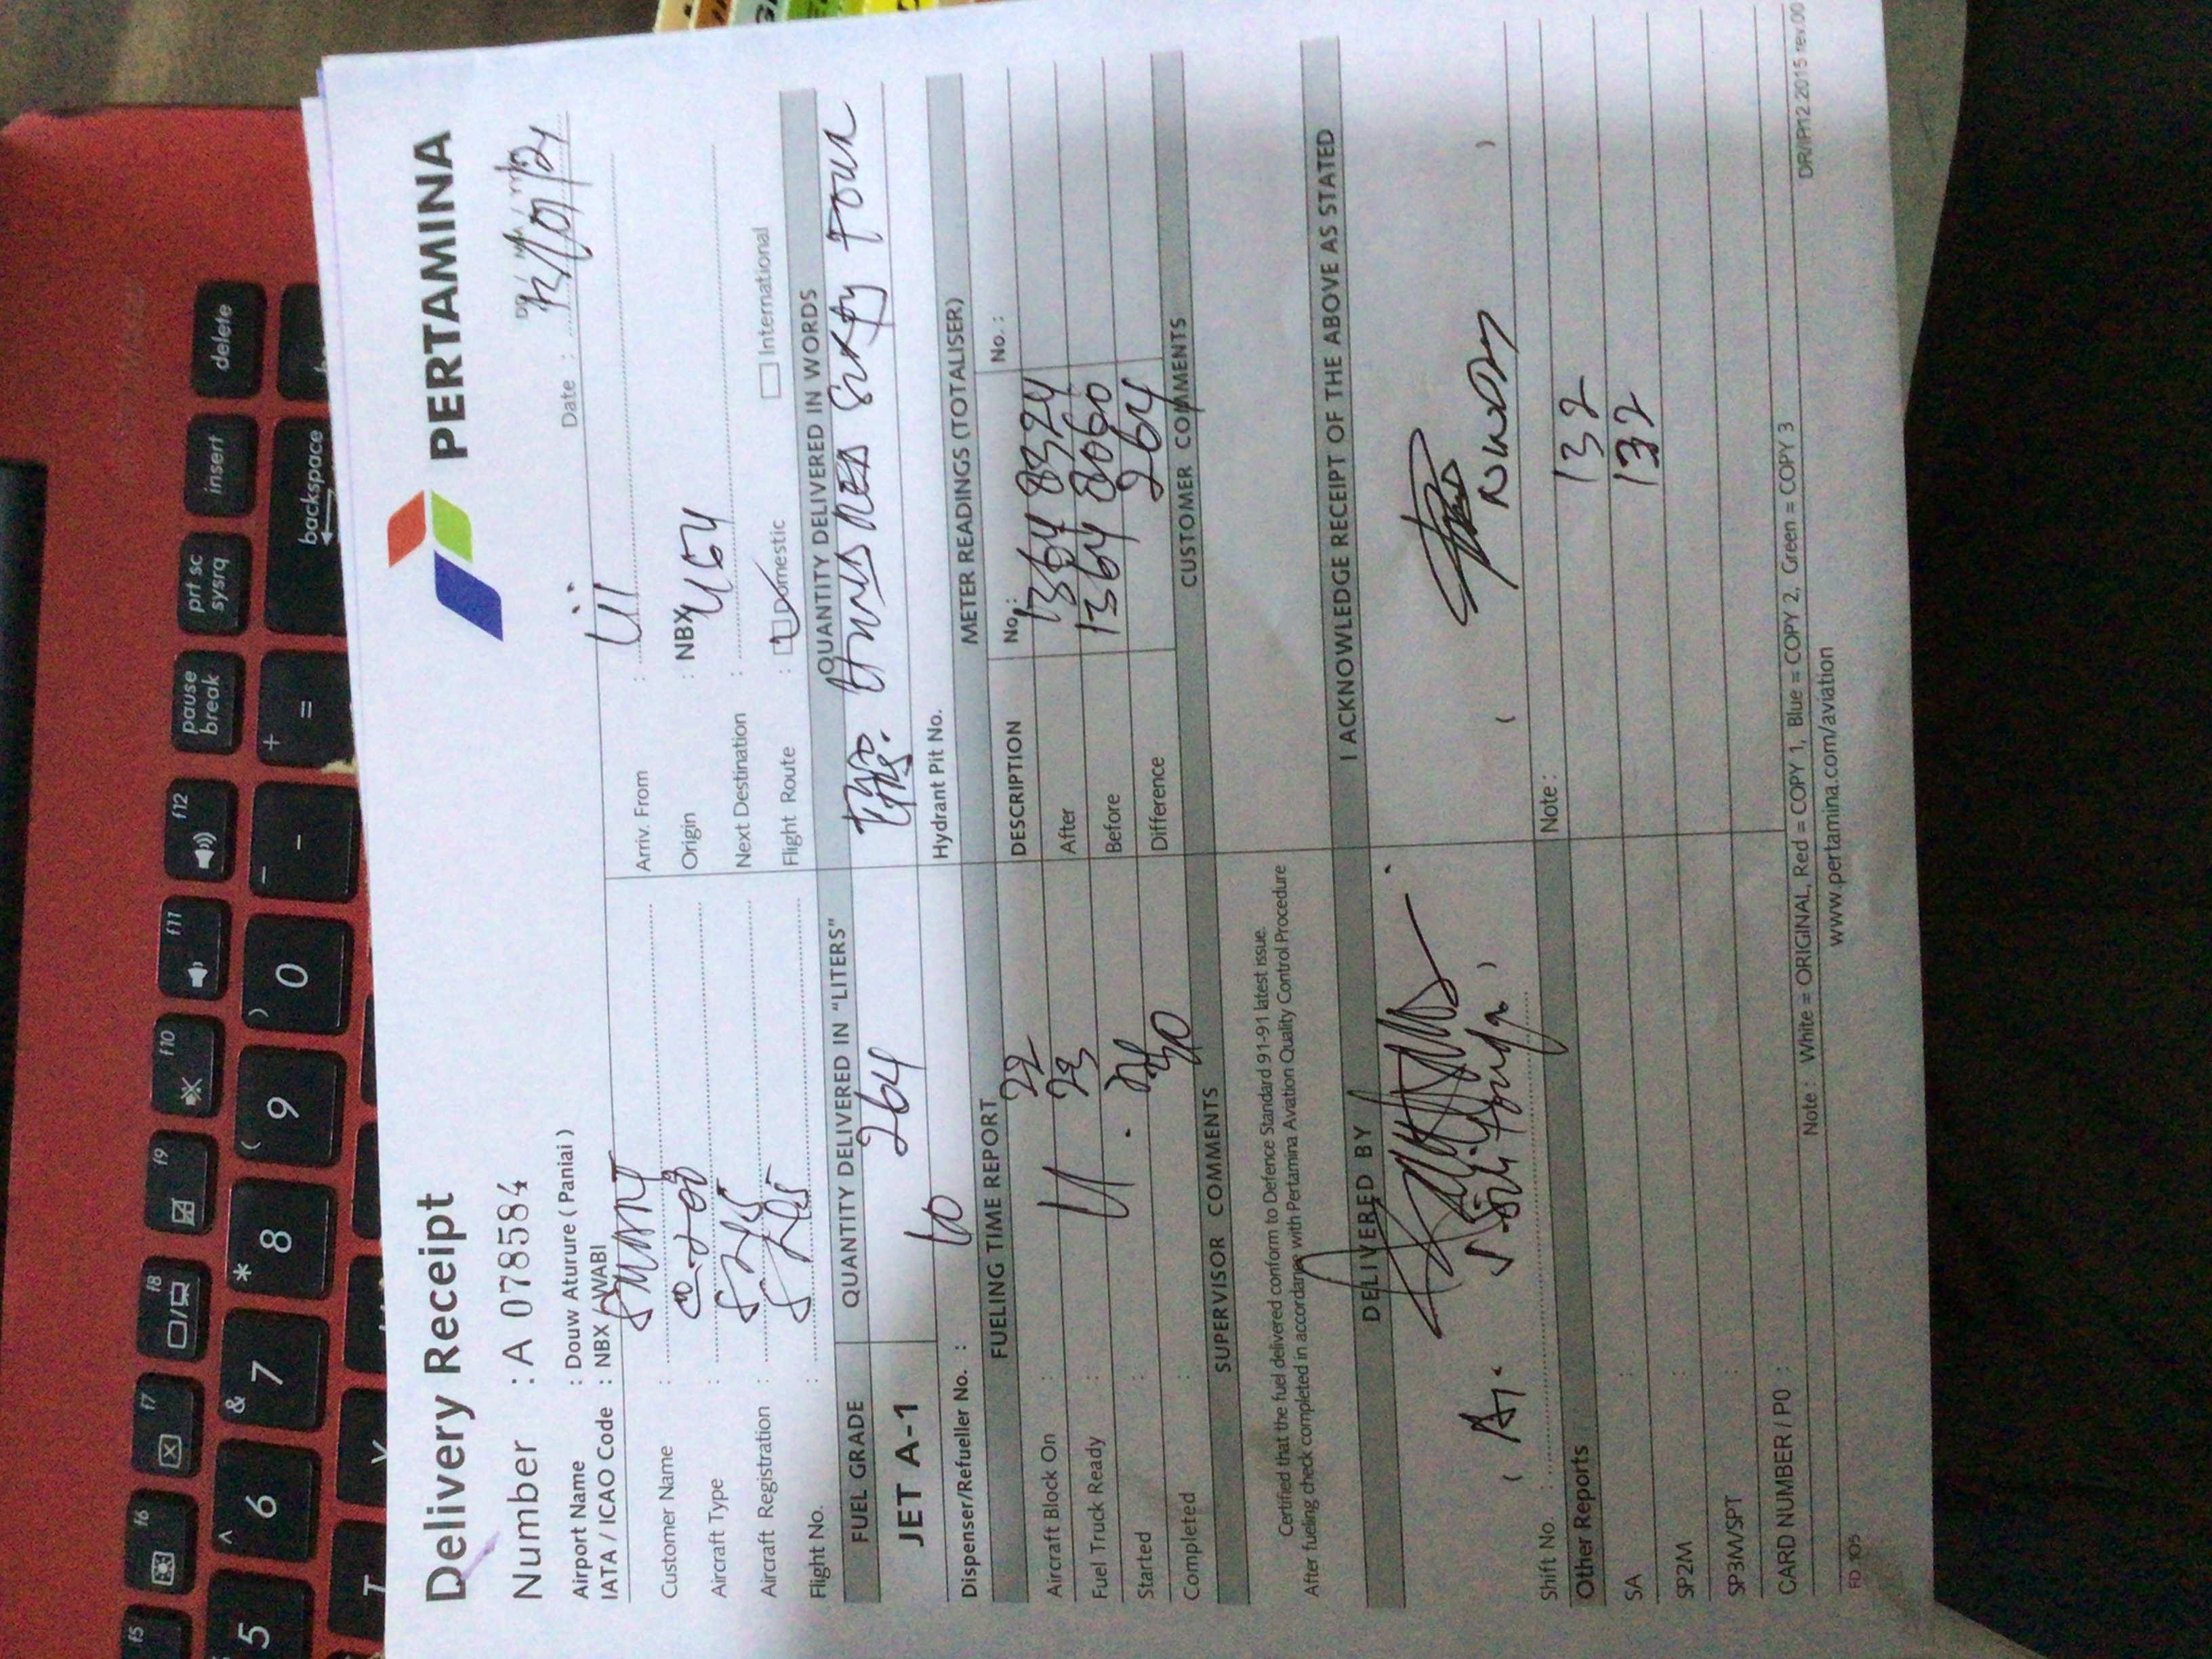 Delivery Receipt
PERTAMINA
Number : A 078584
Date :
Airport Name : Douw Aturure ( Paniai )
IATA / ICAO Code : NBX / WABI
Customer Name : SMART
Aircraft Type : C-208
Aircraft Registration : SNS
Flight No. : SNS
Arriv. From : UI
Origin : NBX
Next Destination : UGU
Flight Route : Domestic International
FUEL GRADE
JET A-1
QUANTITY DELIVERED IN "LITERS"
264
QUANTITY DELIVERED IN WORDS
Two Hundred Sixty Four
Dispenser/Refueller No. : 10
Hydrant Pit No.
FUELING TIME REPORT
Aircraft Block On : 22
Fuel Truck Ready : 23
Started :
Completed : 30
METER READINGS (TOTALISER)
DESCRIPTION No.: No. :
After 1364 8324
Before 1364 8060
Difference 264
SUPERVISOR COMMENTS
CUSTOMER COMMENTS
Certified that the fuel delivered conform to Defence Standard 91-91 latest issue.
After fueling check completed in accordance with Pertamina Aviation Quality Control Procedure
DELIVERED BY
I ACKNOWLEDGE RECEIPT OF THE ABOVE AS STATED
Shift No. :
Note :
132
132
Other Reports
SA :
SP2M :
SP3M/SPT :
CARD NUMBER / PO :
Note : White = ORIGINAL, Red = COPY 1, Blue = COPY 2, Green = COPY 3
www.pertamina.com/aviation
FD.105
DR/IP/12.2015 rev.00
f5
f6
f7
f8
f9
f10
f11
f12
pause
break
prt sc
sysrq
insert
delete
5
^
6
&
7
*
8
(
9
)
0
_
-
+
=
backspace
T
Y